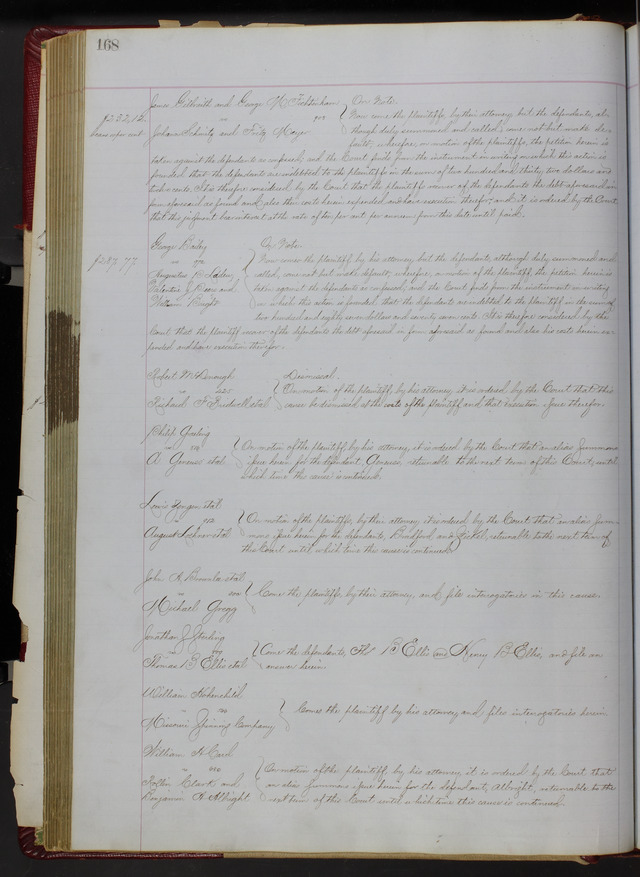 168
James Gilbreith and George W. Tottenham } On Note.
$232.12 vs 
bears 10 per cent Johann Schmitz and Fritz Mayer } Now come the plaintiffs, by their attorney, but the defendants, al-
though duly summoned and called, come not but make de-
fault; wherefore, on motion of the plaintiffs, the petition herein is
taken against the defendants as confessed; and the Court finds from the instrument in writing on which this action is
founded, that the defendants are indebted to the plaintiffs in the sum of two hundred and thirty two dollars and
cents. It is therefore considered by the Court that the plaintiffs recover of the defendants the debt aforesaid in
form aforesaid as found and also their costs herein expended and have execution therefor; and it is ordered by the Court
that this judgment bear interest at the rate of ten per cent per annum from this date until paid.
George Bailey On Note.
$287.77 vs } Now comes the plaintiff, by his attorney, but the defendants, although duly summoned and
Augustus called, come not but make default; wherefore, on motion of the plaintiff, the petition herein is
Valentine J. and taken against the defendants as confessed; and the Court finds from the instrument in writing
William Bright on which this action is founded, that the defendants are indebted to the plaintiff in the sum of
two hundred and eighty seven dollars and seventy seven cents. It is therefore considered by the
Court that the plaintiff recover of the defendants the debt aforesaid in form aforesaid as found and also his costs herein ex-
pended and have execution therefor.
Robert McDonough Dismissal.
vs } On motion of the plaintiff, by his attorney, it is ordered by the Court that this
Richard F. et al cause be dismissed at the costs of the plaintiff, and that execution issue therefor.
Philip
vs } On motion of the plaintiff, by his attorney, it is ordered by the Court that an alias summons
A. et al issue herein for the defendant, returnable to the next term of this Court, until
which time this cause is continued.
Louis et al
vs } On motion of the plaintiffs, by their attorney, it is ordered by the Court that an alias summ-
August et al ons issue herein for the defendants, Bradford and returnable to the next term of
this Court until which time the cause is continued.
John A. et al
vs } Come the plaintiffs, by their attorney, and file interrogatories in this cause.
Michael Gregg
Jonathan J. Stirling
vs } Come the defendants, B. Ellis and Henry B. Ellis, and file an
Thomas B. Ellis et al answer herein.
William
vs } Comes the plaintiff by his attorney, and files interrogatories herein
Missouri Company
William H. Card
vs } On motion of the plaintiff, by his attorney, it is ordered by the Court that
Clark and an alias summons issue herein for the defendant, Albright, returnable to the
Benjamin Albright next term of this Court until which time this cause is continued.